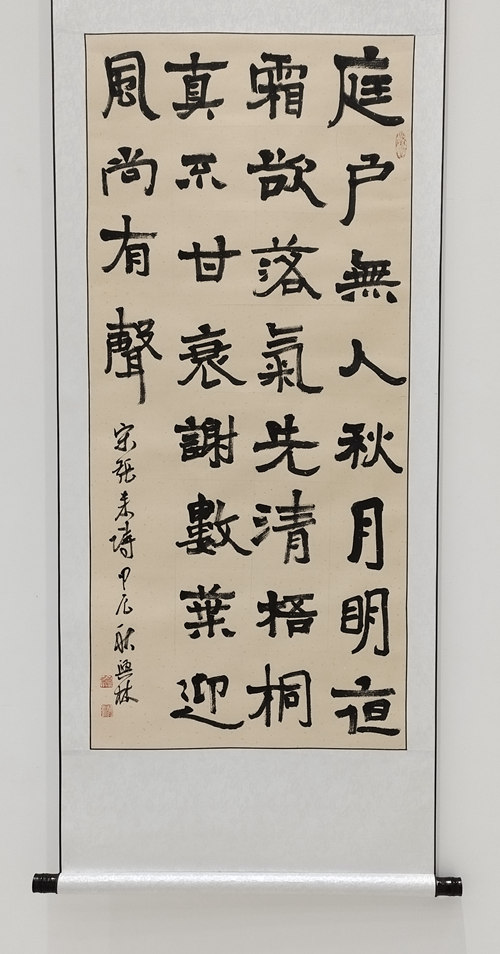 庭户無人秋月明夜
霜欲落氣先清梧桐
真不甘衰謝數葉迎
風尚有聲
宋張耒詩甲辰耿興林